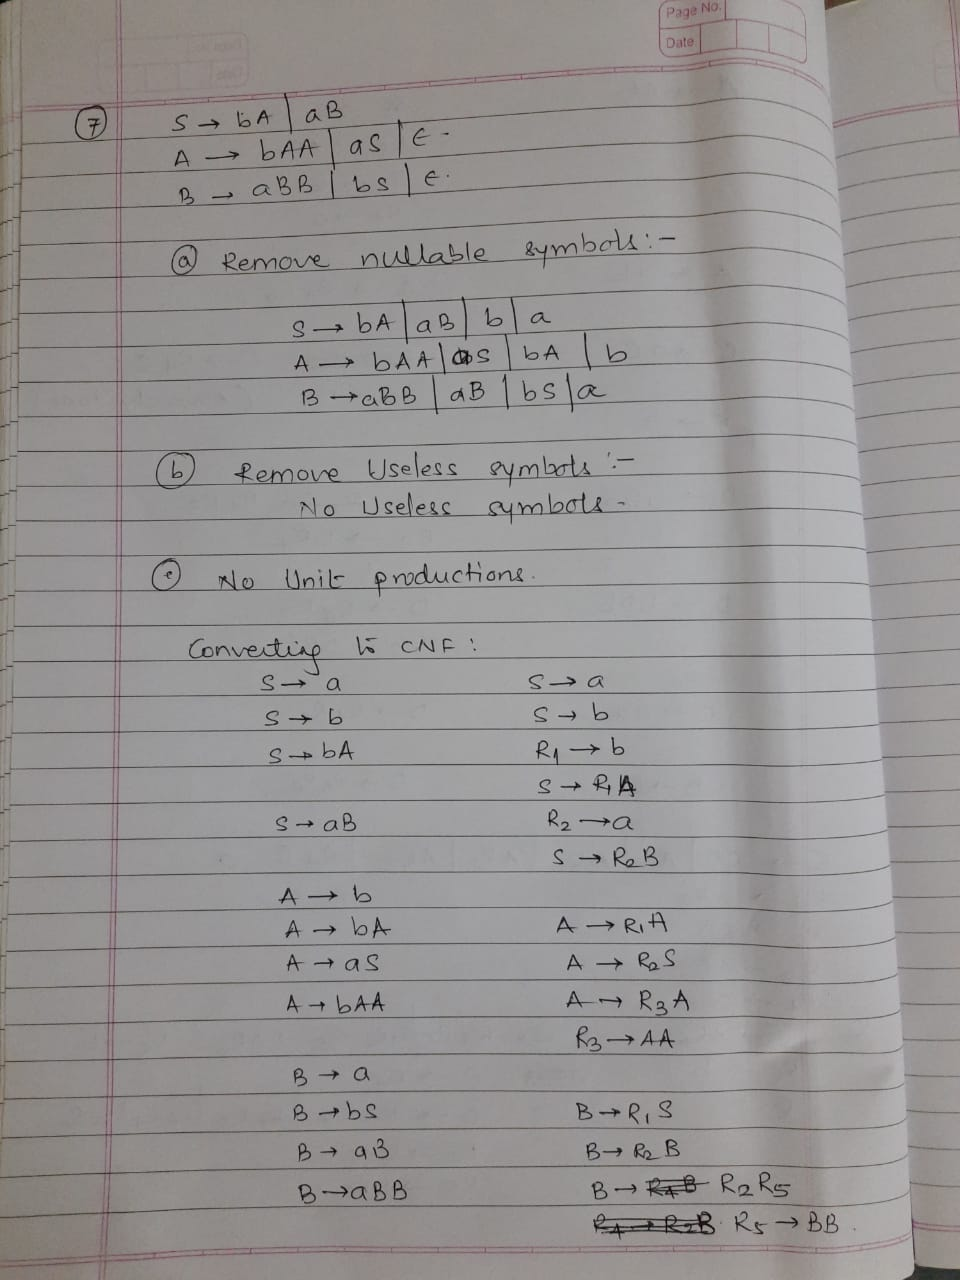 Page No.
Date
⑦ S → bA | aB
A → bAA | as | ∈ -
B → aBB | bs | ∈.
ⓐ Remove nullable symbols :-
S → bA | aB | b | a
A → bAA | as | bA | b
B → aBB | aB | bS | a
ⓑ Remove Useless symbols :-
No Useless symbols -
ⓒ No Unit productions.
Converting to CNF :
S → a S → a
S → b S → b
S → bA R₁ → b
S → R₁A
S → aB R₂ → a
S → R₂B
A → b
A → bA A → R₁A
A → aS A → R₂S
A → bAA A → R₃A
R₃ → AA
B → a
B → bS B → R₁S
B → aB B → R₂B
B → aBB B → R₂R₅
R₅ → BB.